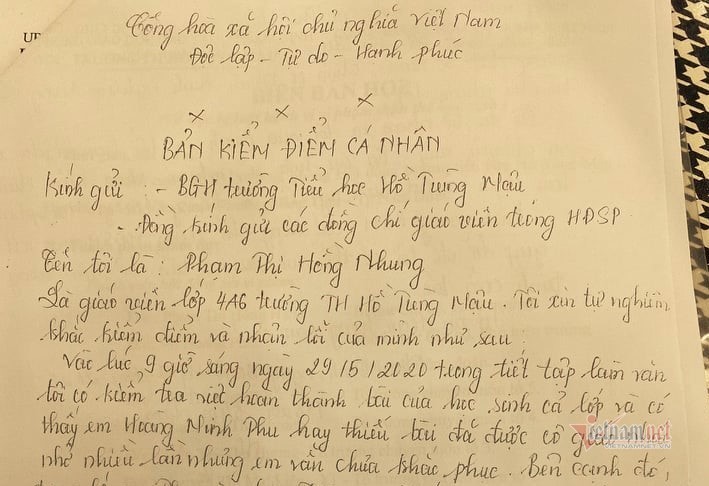 Cộng hòa xã hội chủ nghĩa Việt Nam
Độc lập - Tự do - Hạnh phúc
x x x
BẢN KIỂM ĐIỂM CÁ NHÂN
Kính gửi : - BGH trường Tiểu học Hồ Tùng Mậu
- Đồng kính gửi các đồng chí giáo viên trong HĐSP.
Tên tôi là : Phạm Thị Hồng Nhung
Là giáo viên lớp 4A6 trường TH Hồ Tùng Mậu. Tôi xin tự nghiêm
khắc kiểm điểm và nhận lỗi của mình như sau :
Vào lúc 9 giờ sáng ngày 29/5/2020 trong tiết tập làm văn
tôi có kiểm tra việc hoàn thành bài của học sinh cả lớp và có
thấy em Hoàng Minh Phu hay thiếu bài đã được cô giáo
nhở nhiều lần nhưng em vẫn chưa khắc phục. Bên cạnh đó,
vietnamnet
VIETNAMNET.VN